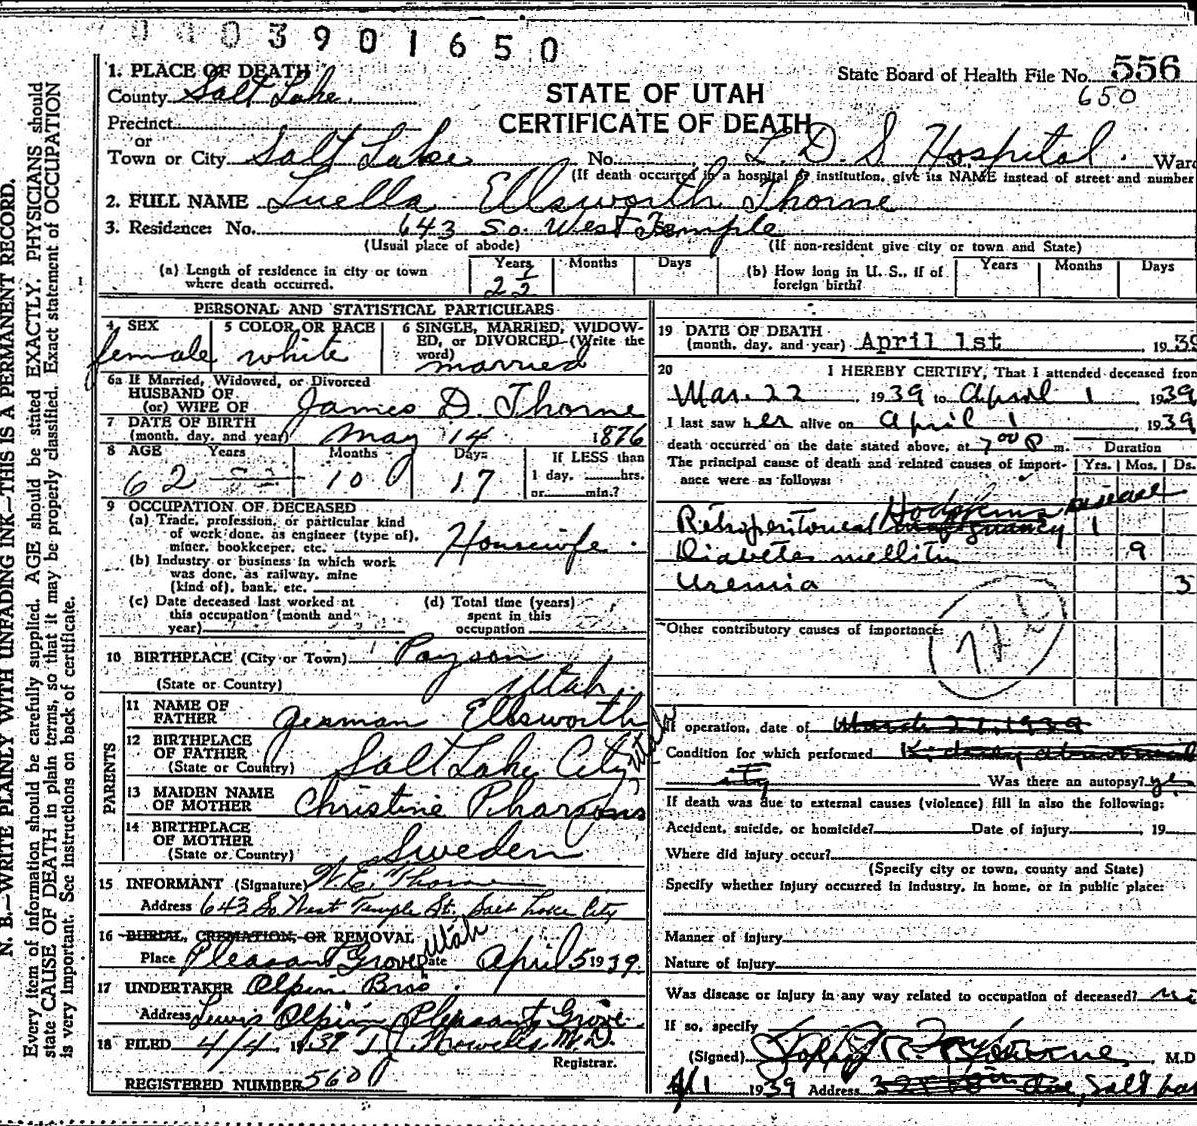 0003901650
1. PLACE OF DEATH
County Salt Lake
State Board of Health File No. 556
650
STATE OF UTAH
CERTIFICATE OF DEATH
Precinct
or
Town or City Salt Lake No. L. D. S Hospital. Ward
(If death occurred in a hospital or institution, give its NAME instead of street and number
2. FULL NAME Luella Ellsworth Thorne
3. Residence: No. 643 So. West Temple
(Usual place of abode) (If non-resident give city or town and State)
(a) Length of residence in city or town where death occurred. Years Months Days
22
(b) How long in U. S., if of foreign birth? Years Months Days
PERSONAL AND STATISTICAL PARTICULARS
4 SEX
female
5 COLOR OR RACE
white
6 SINGLE, MARRIED, WIDOWED, or DIVORCED (Write the word)
married
6a If Married, Widowed, or Divorced
HUSBAND OF
(or) WIFE OF James D. Thorne
7 DATE OF BIRTH
(month, day, and year) May 14 1876
8 AGE Years Months Days If LESS than
1 day, hrs.
or min.?
62 10 17
9 OCCUPATION OF DECEASED
(a) Trade, profession, or particular kind
of work done, as engineer (type of),
miner, bookkeeper, etc. Housewife.
(b) Industry or business in which work
was done, as railway, mine
(kind of), bank, etc.
(c) Date deceased last worked at
this occupation (month and
year)
(d) Total time (years)
spent in this
occupation
10 BIRTHPLACE (City or Town) Payson
(State or Country) Utah
PARENTS
11 NAME OF
FATHER German Ellsworth
12 BIRTHPLACE
OF FATHER
(State or Country) Salt Lake City Utah
13 MAIDEN NAME
OF MOTHER Christine Pharsons
14 BIRTHPLACE
OF MOTHER
(State or Country) Sweden
15 INFORMANT (Signature) W. E. Thorne
Address 643 So West Temple St., Salt Lake City
16 BURIAL, CREMATION, OR REMOVAL
Place Pleasant Grove Utah Date April 5 1939.
17 UNDERTAKER Olpin Bros.
Address Lewis Olpin Pleasant Grove
18 FILED 4/4 1939 M. D.
Registrar.
REGISTERED NUMBER 560
19 DATE OF DEATH
(month, day, and year) April 1st, 1939
20 I HEREBY CERTIFY, That I attended deceased from
Mar. 22 1939 to April 1 1939
I last saw her alive on April 1, 1939
death occurred on the date stated above, at 7 00 P m. Duration
The principal cause of death and related causes of importance were as follows: Yrs. Mos. Ds.
Hodgkins disease
Retroperitoneal malignancy 1
Diabetes mellitus 9
Uremia 3
Other contributory causes of importance:
If operation, date of March 27, 1939
Condition for which performed Kidney abnormality
Was there an autopsy? yes
If death was due to external causes (violence) fill in also the following:
Accident, suicide, or homicide? Date of injury , 19
Where did injury occur?
(Specify city or town, county and State)
Specify whether injury occurred in industry, in home, or in public place:
Manner of injury
Nature of injury
Was disease or injury in any way related to occupation of deceased?
If so, specify
(Signed) M.D
4/1 1939 Address Ave, Salt
N. B.—WRITE PLAINLY WITH UNFADING INK—THIS IS A PERMANENT RECORD.
Every item of information should be carefully supplied. AGE should be stated EXACTLY. PHYSICIANS should
state CAUSE OF DEATH in plain terms, so that it may be properly classified. Exact statement of OCCUPATION
is very important. See instructions on back of certificate.